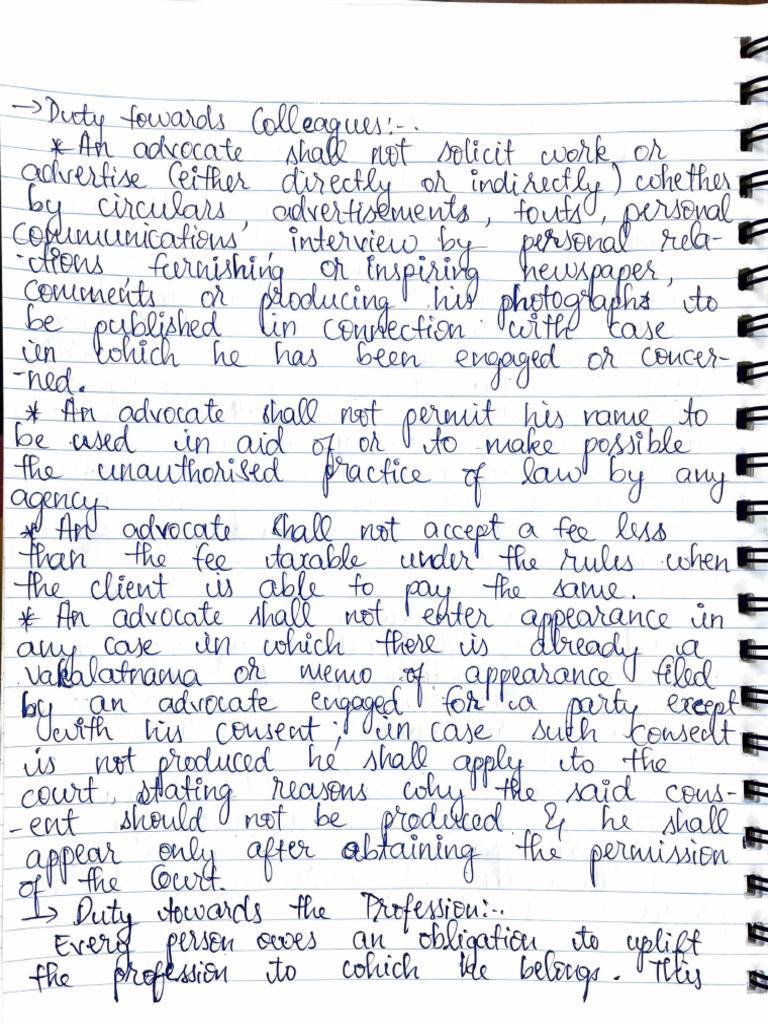 → Duty towards Colleagues:-.
* An advocate shall not solicit work or
advertise (either directly or indirectly) whether
by circulars, advertisements, touts, personal
communications' interview by personal rela-
-tions furnishing or inspiring newspaper,
comments or producing his photographs to
be published in connection with case
in which he has been engaged or concer-
-ned.
* An advocate shall not permit his name to
be used in aid of or to make possible
the unauthorised practice of law by any
agency
* An advocate shall not accept a fee less
than the fee taxable under the rules when
the client is able to pay the same.
* An advocate shall not enter appearance in
any case in which there is already a
vakalatnama or memo of appearance filed
by an advocate engaged for a party except
with his consent; in case such consent
is not produced he shall apply to the
court, stating reasons why the said cons-
-ent should not be produced & he shall
appear only after obtaining the permission
of the Court.
↳ Duty towards the Profession:-.
Every person owes an obligation to uplift
the profession to which he belongs. This